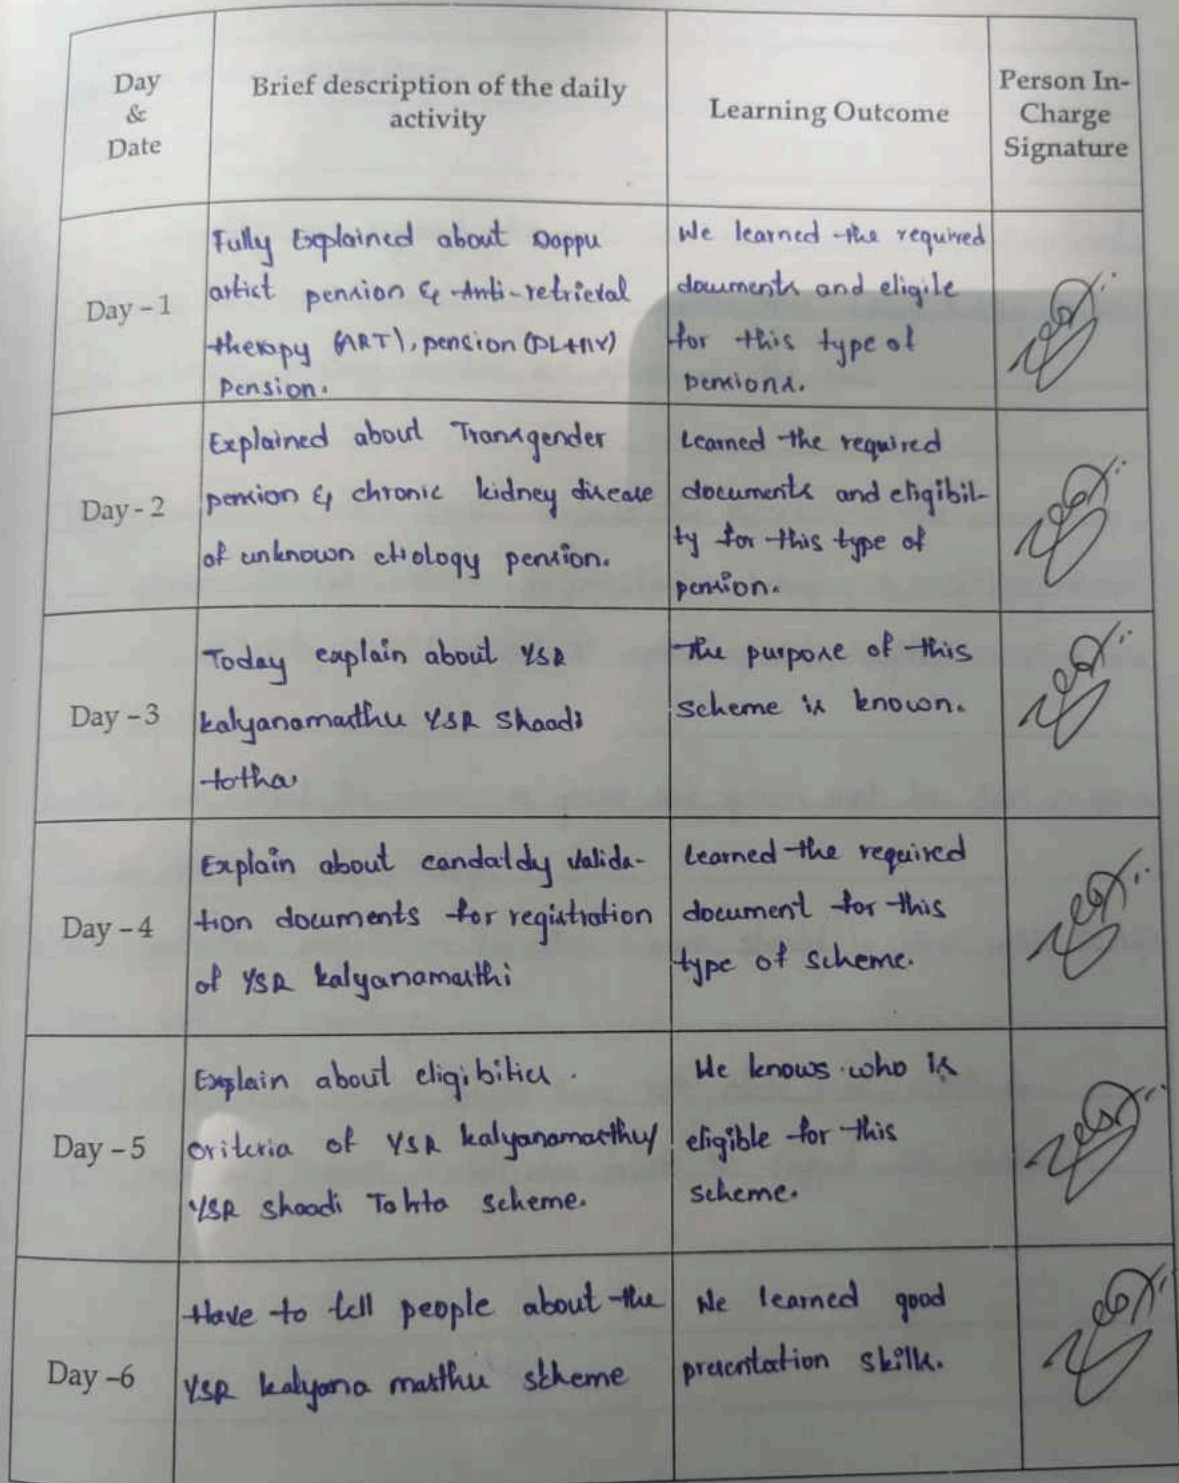 Day
&
Date
Brief description of the daily
activity
Learning Outcome
Person In-
Charge
Signature
Day - 1
Fully Explained about Dappu
artist pension & Anti-retrieval
therapy (ART), pension (PLHIV)
Pension.
We learned the required
douments and eligile
for this type of
pensions.
Day - 2
Explained about Transgender
pension & chronic kidney disease
of unknown etiology pension.
Learned the required
documents and eligibil-
ty for this type of
pension.
Day - 3
Today explain about YSR
kalyanamasthu YSR Shaadi
totha
The purpose of this
scheme is known.
Day - 4
Explain about candaldy valida-
tion documents for registration
of YSR kalyanamasthi
Learned the required
document for this
type of scheme.
Day - 5
Explain about eligibities
criteria of YSR kalyanamasthu/
YSR shaadi Tohta scheme.
We knows who is
eligible for this
scheme.
Day -6
Have to tell people about the
YSR kalyana masthu scheme
We learned good
presentation skills.